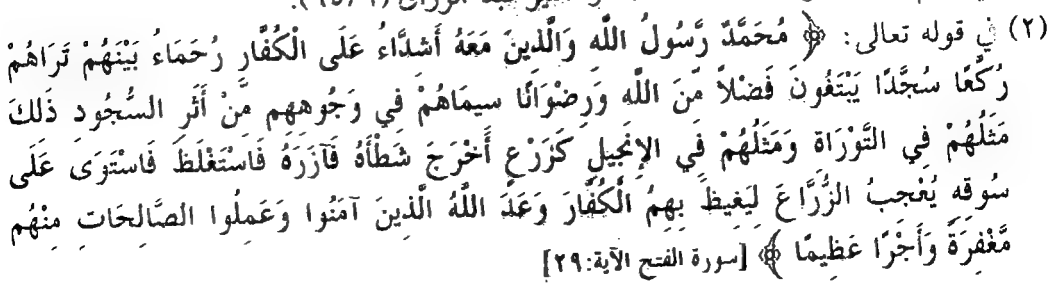 (٢) في قوله تعالى: ﴿ مُحَمَّدٌ رَّسُولُ اللَّه وَالَّذينَ مَعَهُ أَشدَّاءُ عَلَى الْكُفَّارِ رُحَمَاءُ بَيْنَهُمْ تَرَاهُمْ
رُكَّعًا سُجَّدًا يَبْتَغُونَ فَضْلاً مِّنَ اللَّه وَرضْوَانًا سيمَاهُمْ في وَجُوههم مِّنْ أَثَر السُّجُود ذَلكَ
مَثَلُهُمْ في التَّوْرَاة وَمَثَلُهُمْ في الإنجيل كَزَرْعٍ أَخْرَجَ شَطْأَهُ فَآزَرَهُ فَاسْتَغْلَظَ فَاسْتَوَى عَلَى
سُوقه يُعْجبُ الزُّرَّاعَ ليَغيظَ بهمُ الْكُفَّارَ وَعَدَ اللَّهُ الَّذينَ آمَنُوا وَعَملُوا الصَّالحَات منْهُم
مَّغْفرَةً وَأَجْرًا عَظيمًا ﴾ [سورة الفتح الآية:٢٩]